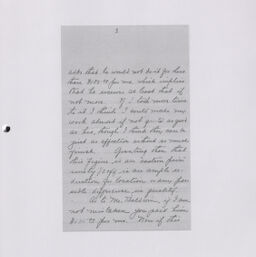 3
asks that he would not do it for less
than $1.50 for me which implies
that he receives at least that if
not more. If I took more time
to it I think I could make my
work almost if not quite as good
as his, though I think they are
good as effective without so much
finish. Granting then that
this figure is an eastern
is an ample
for location & any
sible difference in quality.
As to Mr. Baldwin, if I am
not mistaken you paid him
for me. Now if this